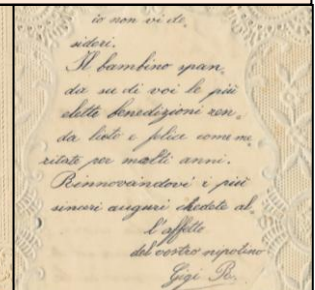 io non vi de-
sideri.
Il bambino span-
da su di voi le più
elette benedizioni ren-
da lieto e felice come me-
ritate per molti anni.
Rinnovandovi i più
sinceri auguri chedete al-
l'affetto
del vostro nipotino
Gigi R.